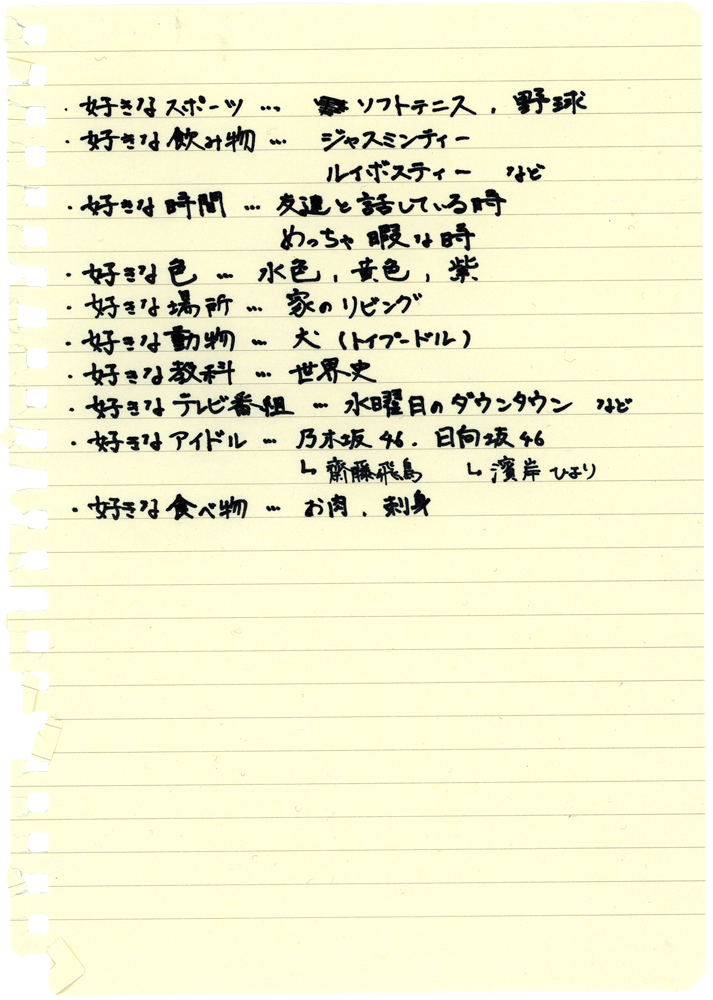 ・好きなスポーツ … ソフトテニス、野球
・好きな飲み物 … ジャスミンティー
ルイボスティー など
・好きな時間 … 友達と話している時
めっちゃ暇な時
・好きな色 … 水色、黄色、紫
・好きな場所 … 家のリビング
・好きな動物 … 犬(トイプードル)
・好きな教科 … 世界史
・好きなテレビ番組 … 水曜日のダウンタウン など
・好きなアイドル … 乃木坂46、日向坂46
↳齋藤飛鳥 ↳濱岸ひより
・好きな食べ物 … お肉、刺身